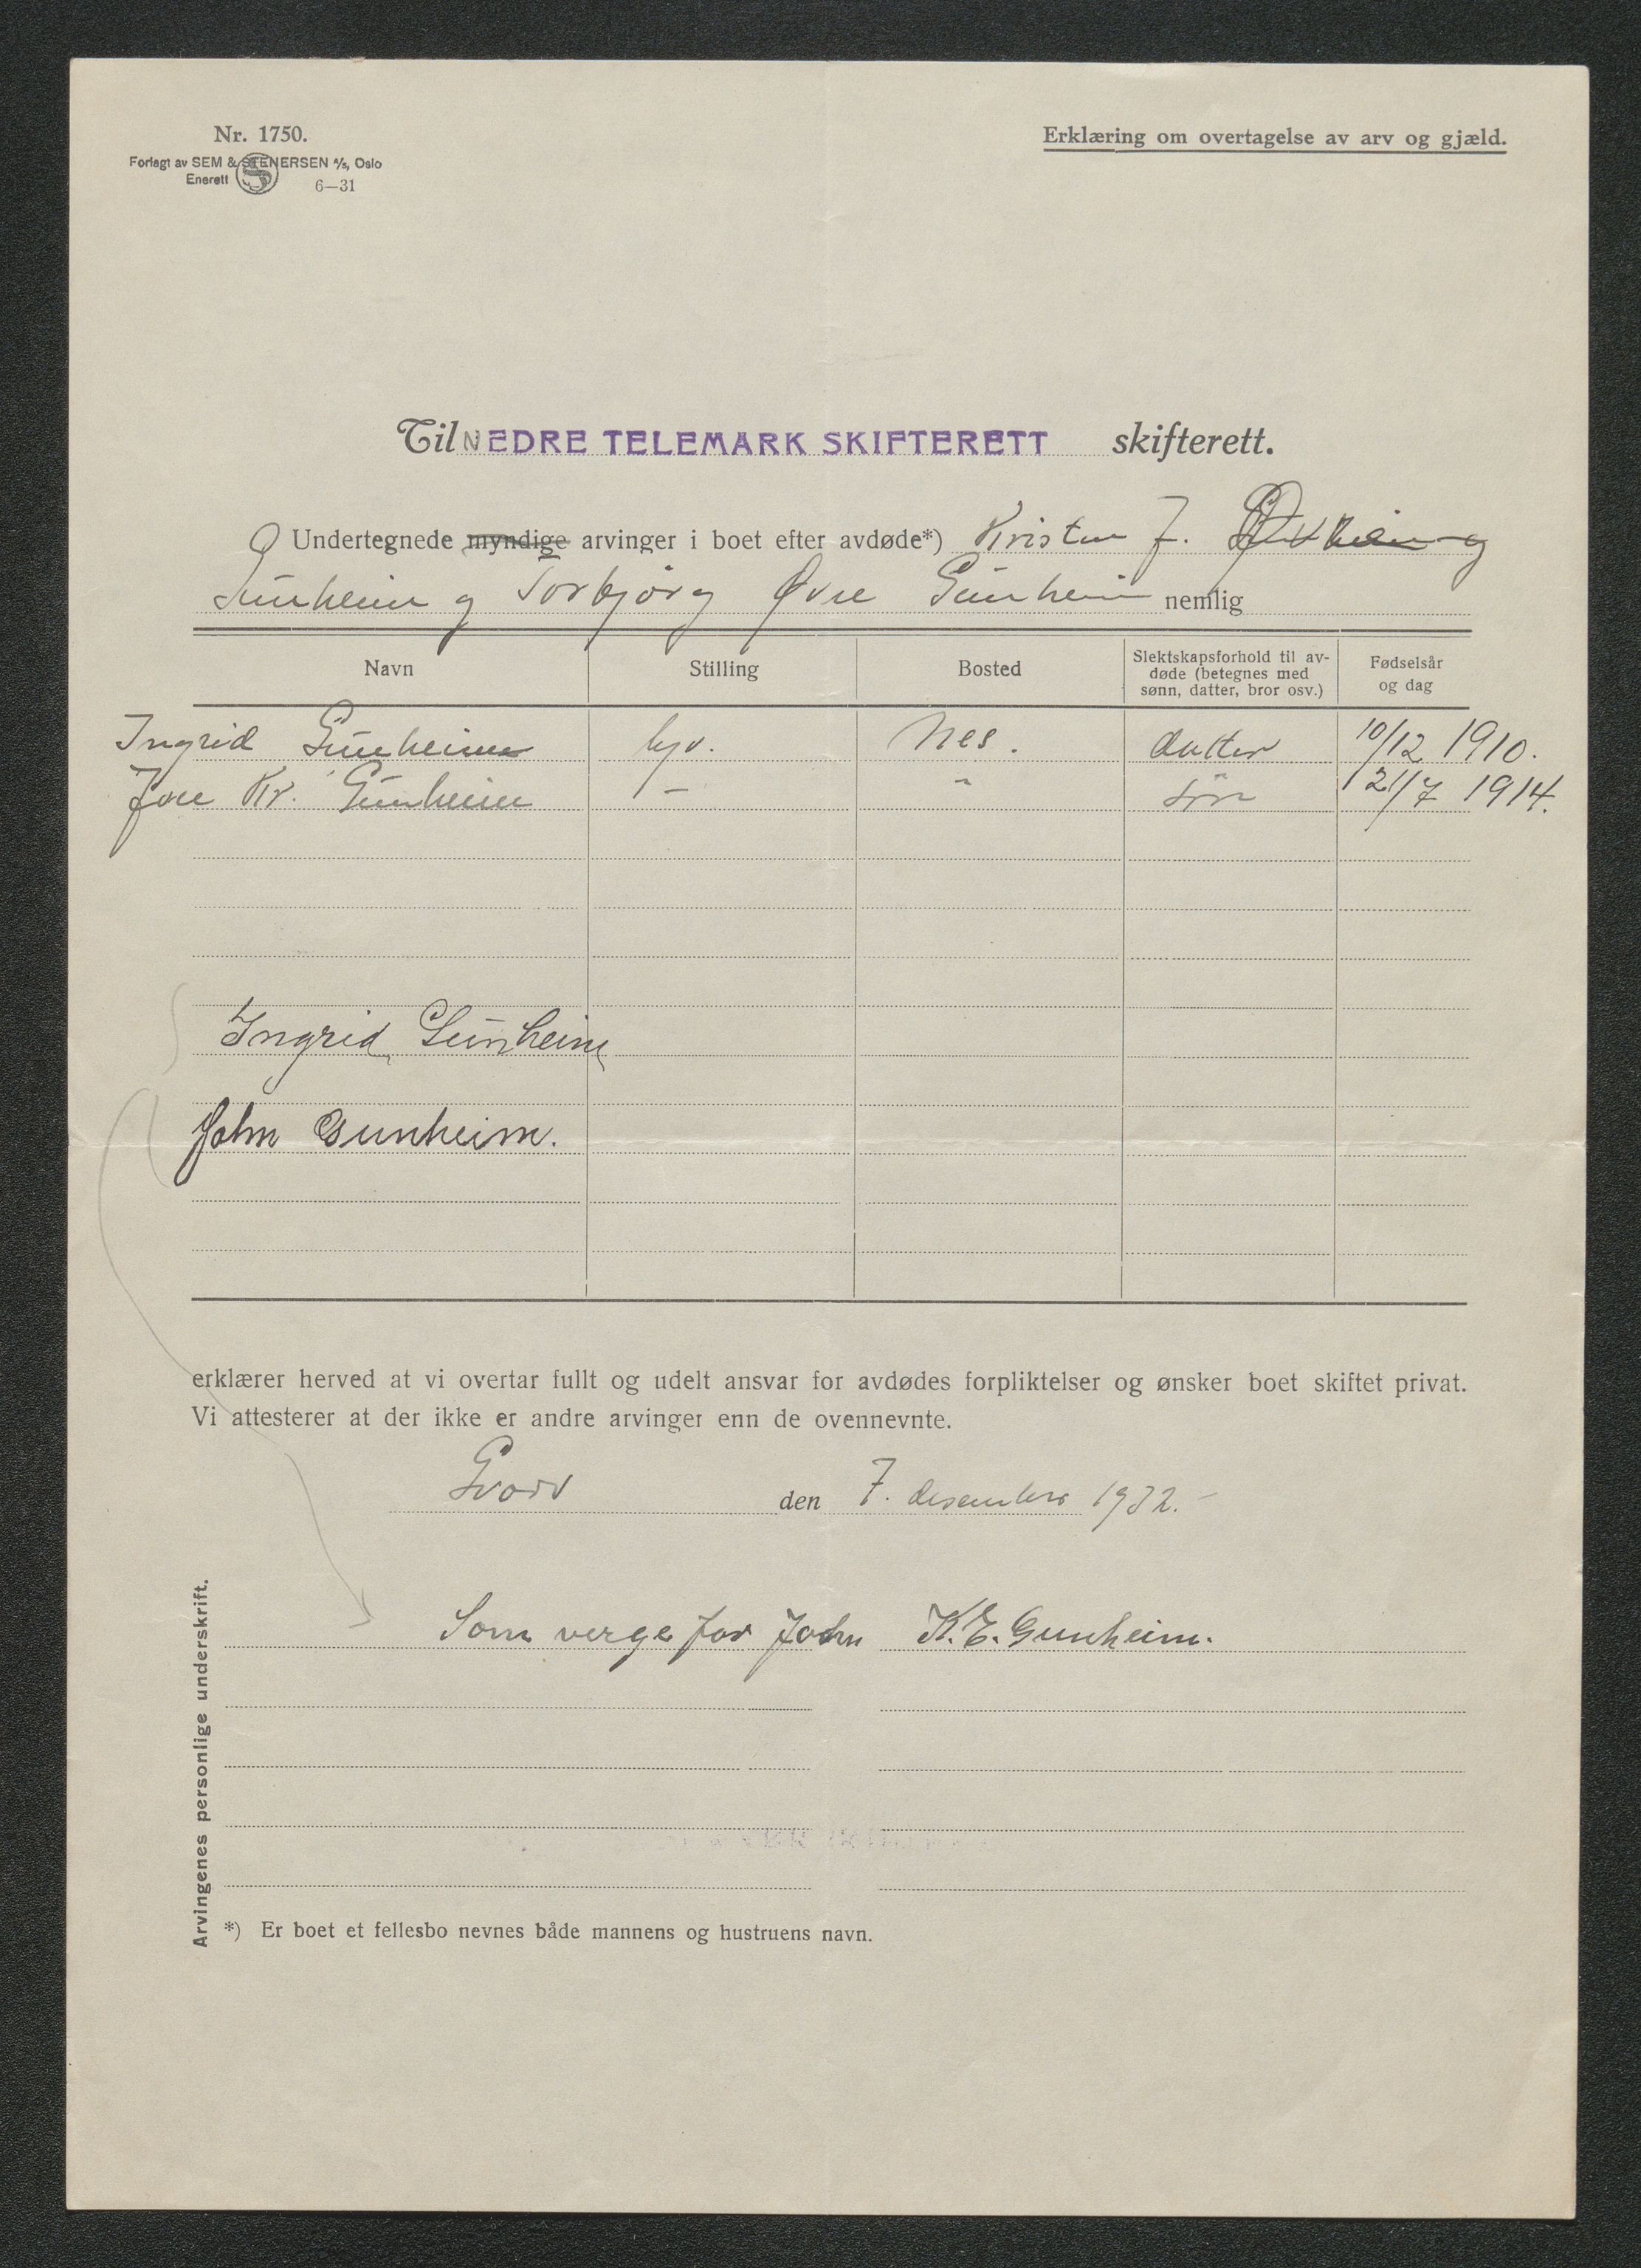 Nr. 1750.
Forlagt av SEM & STENERSEN A/S, Oslo
Enerett 6—31
Erklæring om overtagelse av arv og gjæld.
Til NEDRE TELEMARK SKIFTERETT skifterett.
Undertegnede myndige arvinger i boet efter avdøde*) Kristen J.
Gunheim og Torbjørg Øvre Gunheim nemlig
Navn Stilling Bosted Slektskapsforhold til avdøde (betegnes med sønn, datter, bror osv.) Fødselsår og dag
Ingrid Gunheim hjv. Nes. datter 10/12 1910.
Jon Kr. Gunheim – " søn 21/7 1914.
Ingrid Gunheim
John Gunheim.
erklærer herved at vi overtar fullt og udelt ansvar for avdødes forpliktelser og ønsker boet skiftet privat.
Vi attesterer at der ikke er andre arvinger enn de ovennevnte.
Gvarv den 7. desember 1932.-
Som verge for John K. E. Gunheim.
Arvingenes personlige underskrift.
*) Er boet et fellesbo nevnes både mannens og hustruens navn.